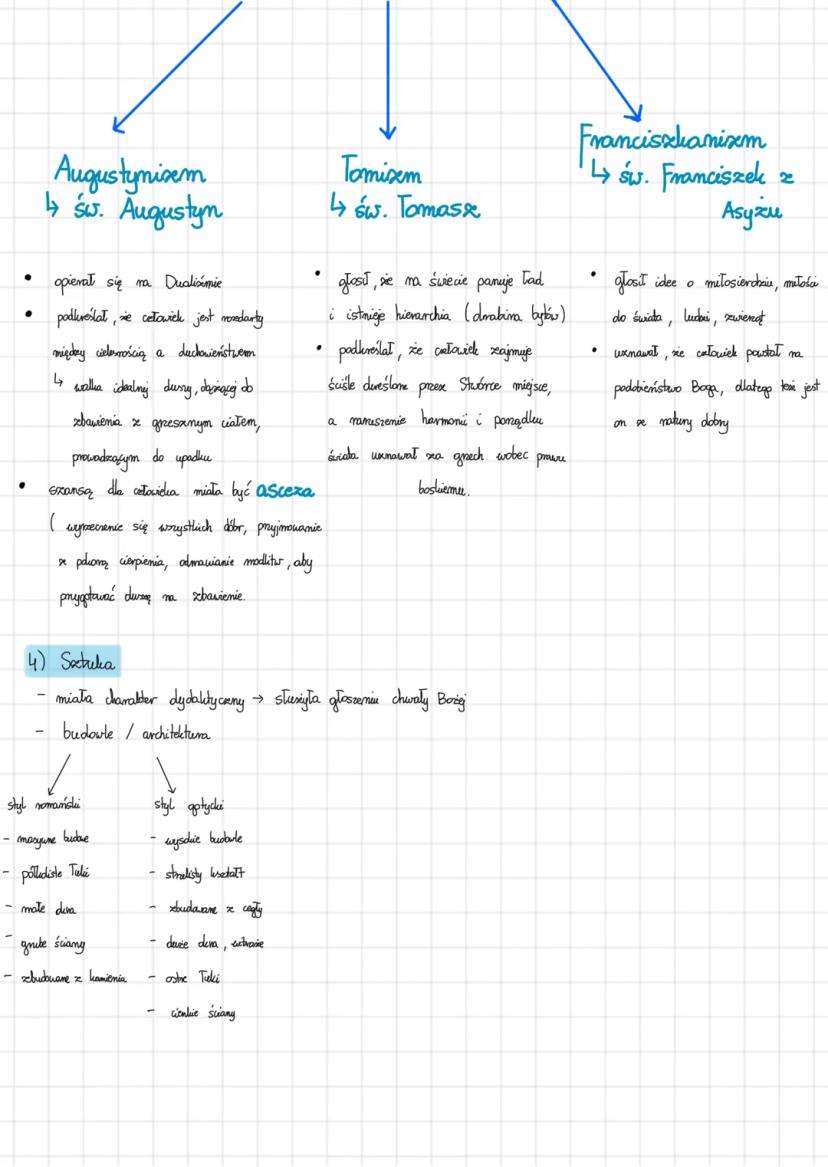 Augustynizm
↳ św. Augustyn
• opierał się na Dualizmie
• podkreślał, że człowiek jest rozdarty
między cielesnością a duchowieństwem
↳ walka idealnej duszy, dążącej do
zbawienia z grzesznym ciałem,
prowadzącym do upadku
• szansą dla człowieka miała być asceza
( wyrzeczenie się wszystkich dóbr, przyjmowanie
z pokorą cierpienia, odmawianie modlitw, aby
przygotować duszę na zbawienie.
Tomizm
↳ św. Tomasz
• głosił, że na świecie panuje ład
i istnieje hierarchia (drabina bytów)
• podkreślał, że człowiek zajmuje
ściśle określone przez Stwórcę miejsce,
a naruszenie harmonii i porządku
świata uznawał za grzech wobec prawu
boskiemu.
Franciszkanizm
↳ św. Franciszek z
Asyżu
• głosił idee o miłosierdziu, miłości
do świata, ludzi, zwierząt
• uznawał, że człowiek powstał na
podobieństwo Boga, dlatego też jest
on ze natury dobry
4) Sztuka
- miała charakter dydaktyczny → służyła głoszeniu chwały Bożej
- budowle / architektura
styl romański
- masywne budowle
- półkoliste łuki
- małe okna
- grube ściany
- zbudowane z kamienia
styl gotycki
- wysokie budowle
- strzelisty kształt
- zbudowane z cegły
- duże okna, witraże
- ostre łuki
- cienkie ściany